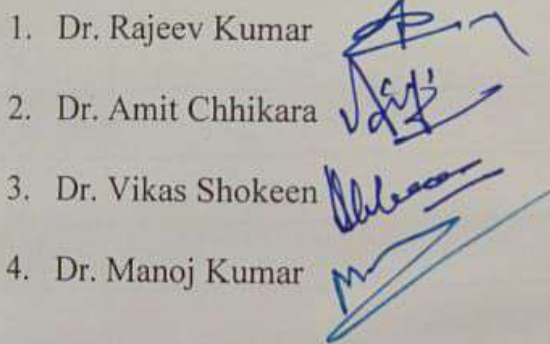 1. Dr. Rajeev Kumar
2. Dr. Amit Chhikara
3. Dr. Vikas Shokeen
4. Dr. Manoj Kumar